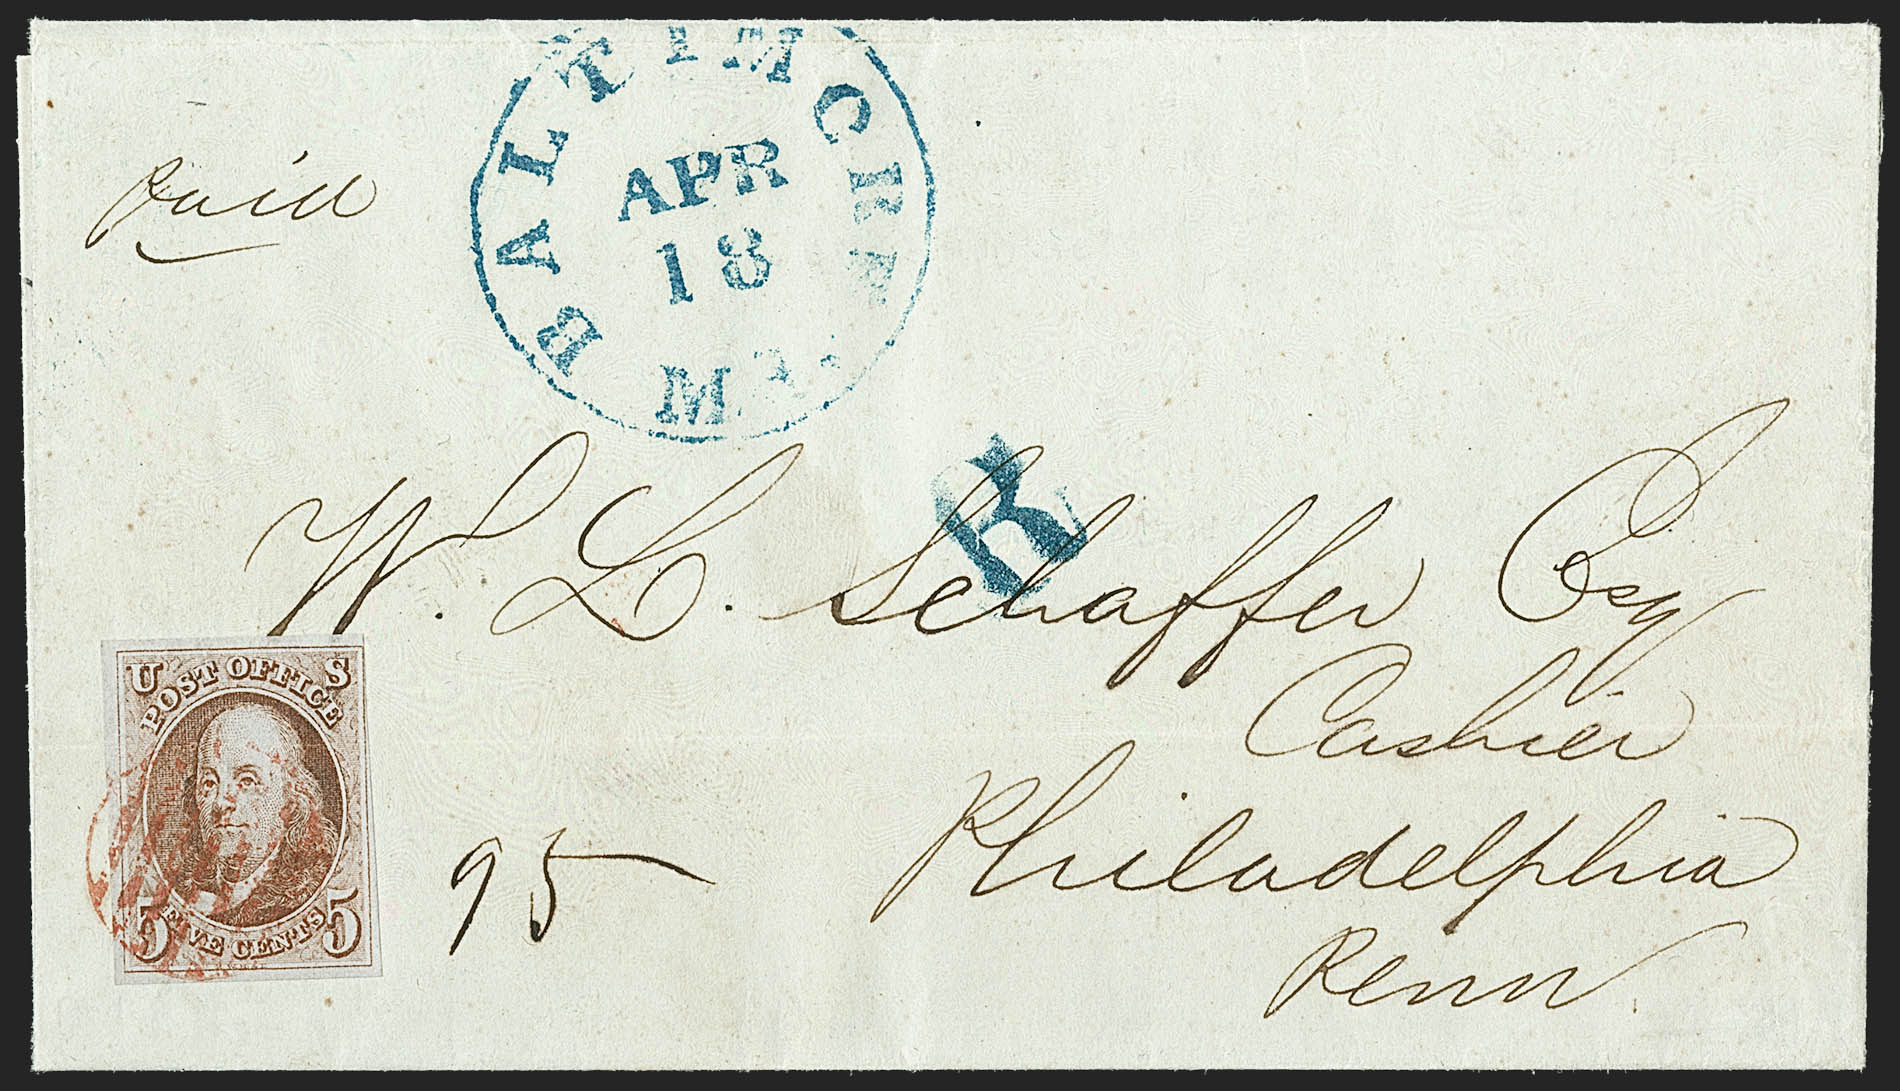 paid
BALTIMORE
APR
18
Md.
R
W. L. Schaffer Esq
Cashier
Philadelphia
Penn
95
U S
POST OFFICE
5 FIVE CENTS 5